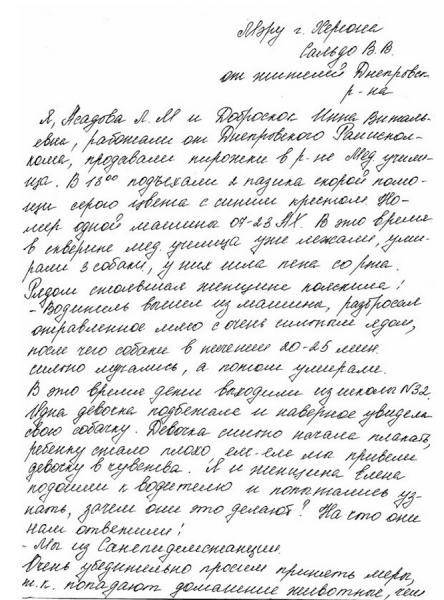 Мэру г. Херсона
Сальдо В.В.
от жителей Днепровск.
р-на
Я, Асадова Л.М и Доброскок Инна Виталь-
евна, работали от Днепровского Райиспол-
кома, продавали пирожки в р-не Мед. учили-
ща. В 13⁰⁰ подъехали 2 пазика скорой помо-
щи серого цвета с синим крестом. Но-
мер одной машины 07-23 АХ. В это время
в скверике мед. училища уже лежали, уми-
рали 3 собаки, у них шла пена со рта.
Рядом стоявшая женщина пояснила:
- Водитель вышел из машины, разбросал
отравленное мясо с очень сильным ядом,
после чего собаки в течение 20-25 мин.
сильно мучались, а потом умирали.
В это время дети выходили из школы №32.
Одна девочка подбежала и наверное увидела
свою собачку. Девочка сильно начала плакать,
ребенку стало плохо, еле-еле мы привели
девочку в чувства. Я и женщина Елена
подошли к водителю и попытались уз-
нать, зачем они это делают? На что они
нам ответили:
- Мы из Санэпидемстанции.
Очень убедительно просим принять меры,
т.к. попадают домашние животные, чем